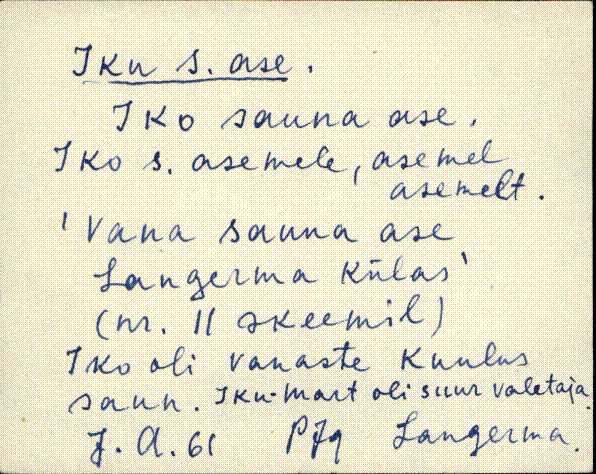 Iku s. ase.
Iko sauna ase.
Iko s. asemele, asemel
asemelt.
'Vana sauna ase
Langerma külas'
(nr. 11 skeemil)
Iko oli vanaste kuulus
saun. Iku-Mart oli suur valetaja.
J. A. 61 PJg Langerma.